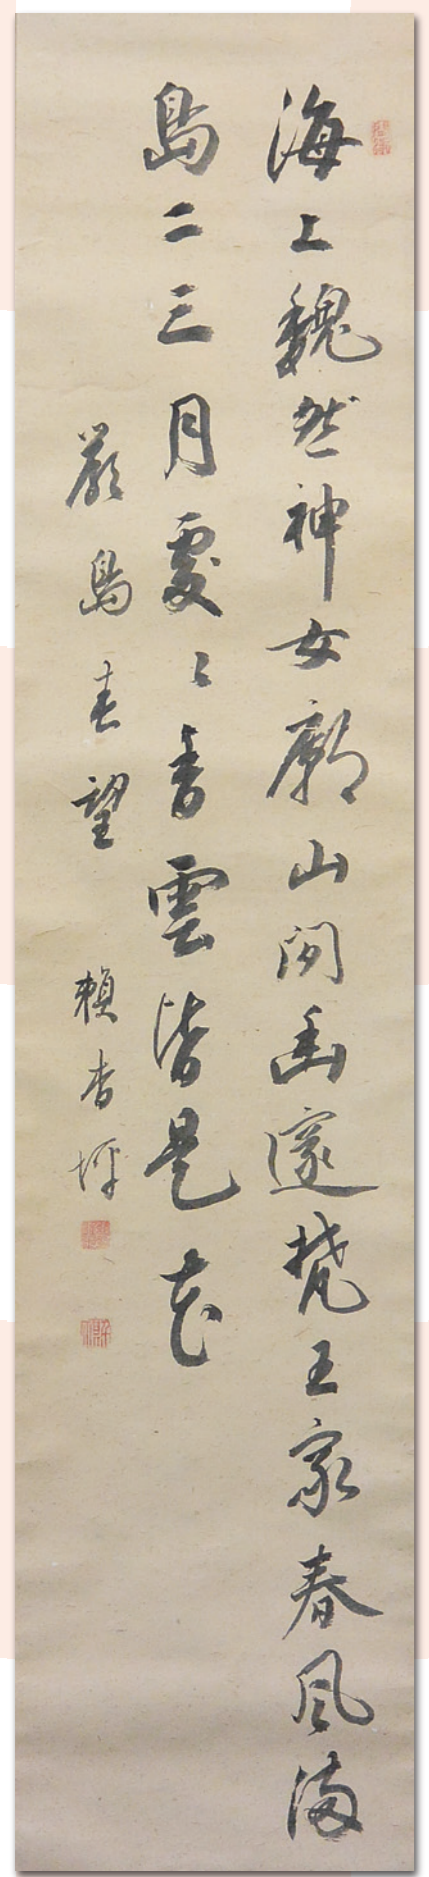 海上巍然神女廟山間幽邃梵王家春風満
島二三月處〻香雲皆是花
嚴島春望　頼杏坪